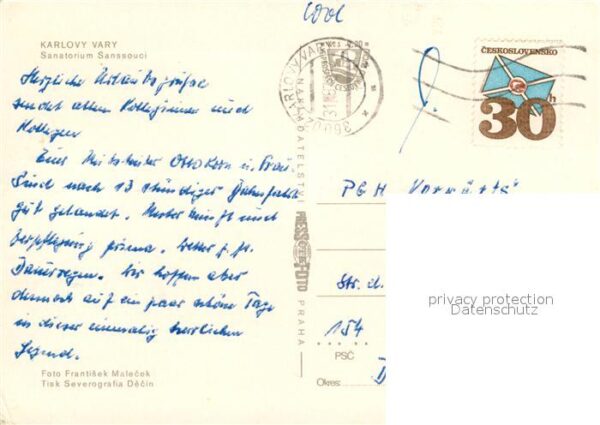 KARLOVY VARY
Sanatorium Sanssouci
Herzliche Urlaubsgrüße
sendet allen Kolleginnen und
Kollegen
Euer Mitarbeiter Otto Kern u. Frau.
Sind nach 13 stündiger Bahnfahrt
gut gelandet. Unterkunft und
Verpflegung prima. Wetter z. Zt.
Dauerregen. Wir hoffen aber
dennoch auf ein paar schöne Tage
in dieser einmalig herrlichen
Gegend.
Foto František Maleček
Tisk Severografia Děčín
NAKLADATELSTVÍ
PRESSFOTO
PRAHA
KARLOVY VARY
360 02
ČESKOSLOVENSKO
30 h
PGH "Vorwärts"
Str. d.
154
PSČ
Okres:
privacy protection
Datenschutz